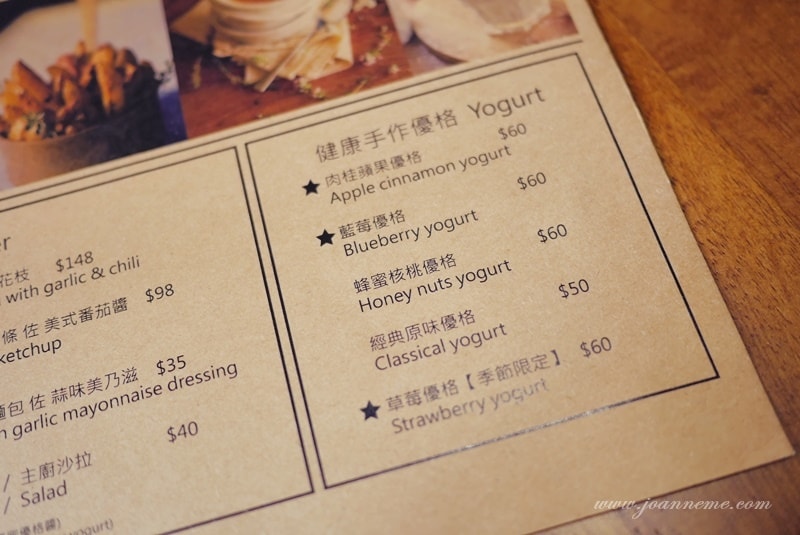 er
花枝 $148
with garlic & chili
條 佐 美式番茄醬 $98
ketchup
麵包 佐 蒜味美乃滋 $35
garlic mayonnaise dressing
$40
/ 主廚沙拉
/ Salad
優格醬)
yogurt)
健康手作優格 Yogurt
★ 肉桂蘋果優格 $60
Apple cinnamon yogurt
★ 藍莓優格 $60
Blueberry yogurt
蜂蜜核桃優格 $60
Honey nuts yogurt
經典原味優格 $50
Classical yogurt
★ 草莓優格【季節限定】 $60
Strawberry yogurt
www.joanneme.com